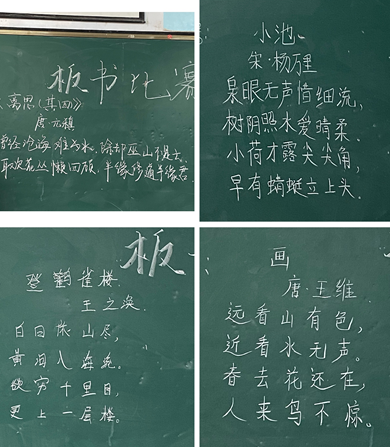 板书比赛
离思(其四)》
唐·元稹
曾经沧海难为水,除却巫山不是云
取次花丛懒回顾,半缘修道半缘君
小池
宋·杨万里
泉眼无声惜细流,
树阴照水爱晴柔
小荷才露尖尖角,
早有蜻蜓立上头
板
登鹳雀楼
王之涣
白日依山尽,
黄河入海流
欲穷千里目,
更上一层楼。
画
唐·王维
远看山有色,
近看水无声。
春去花还在,
人来鸟不惊。